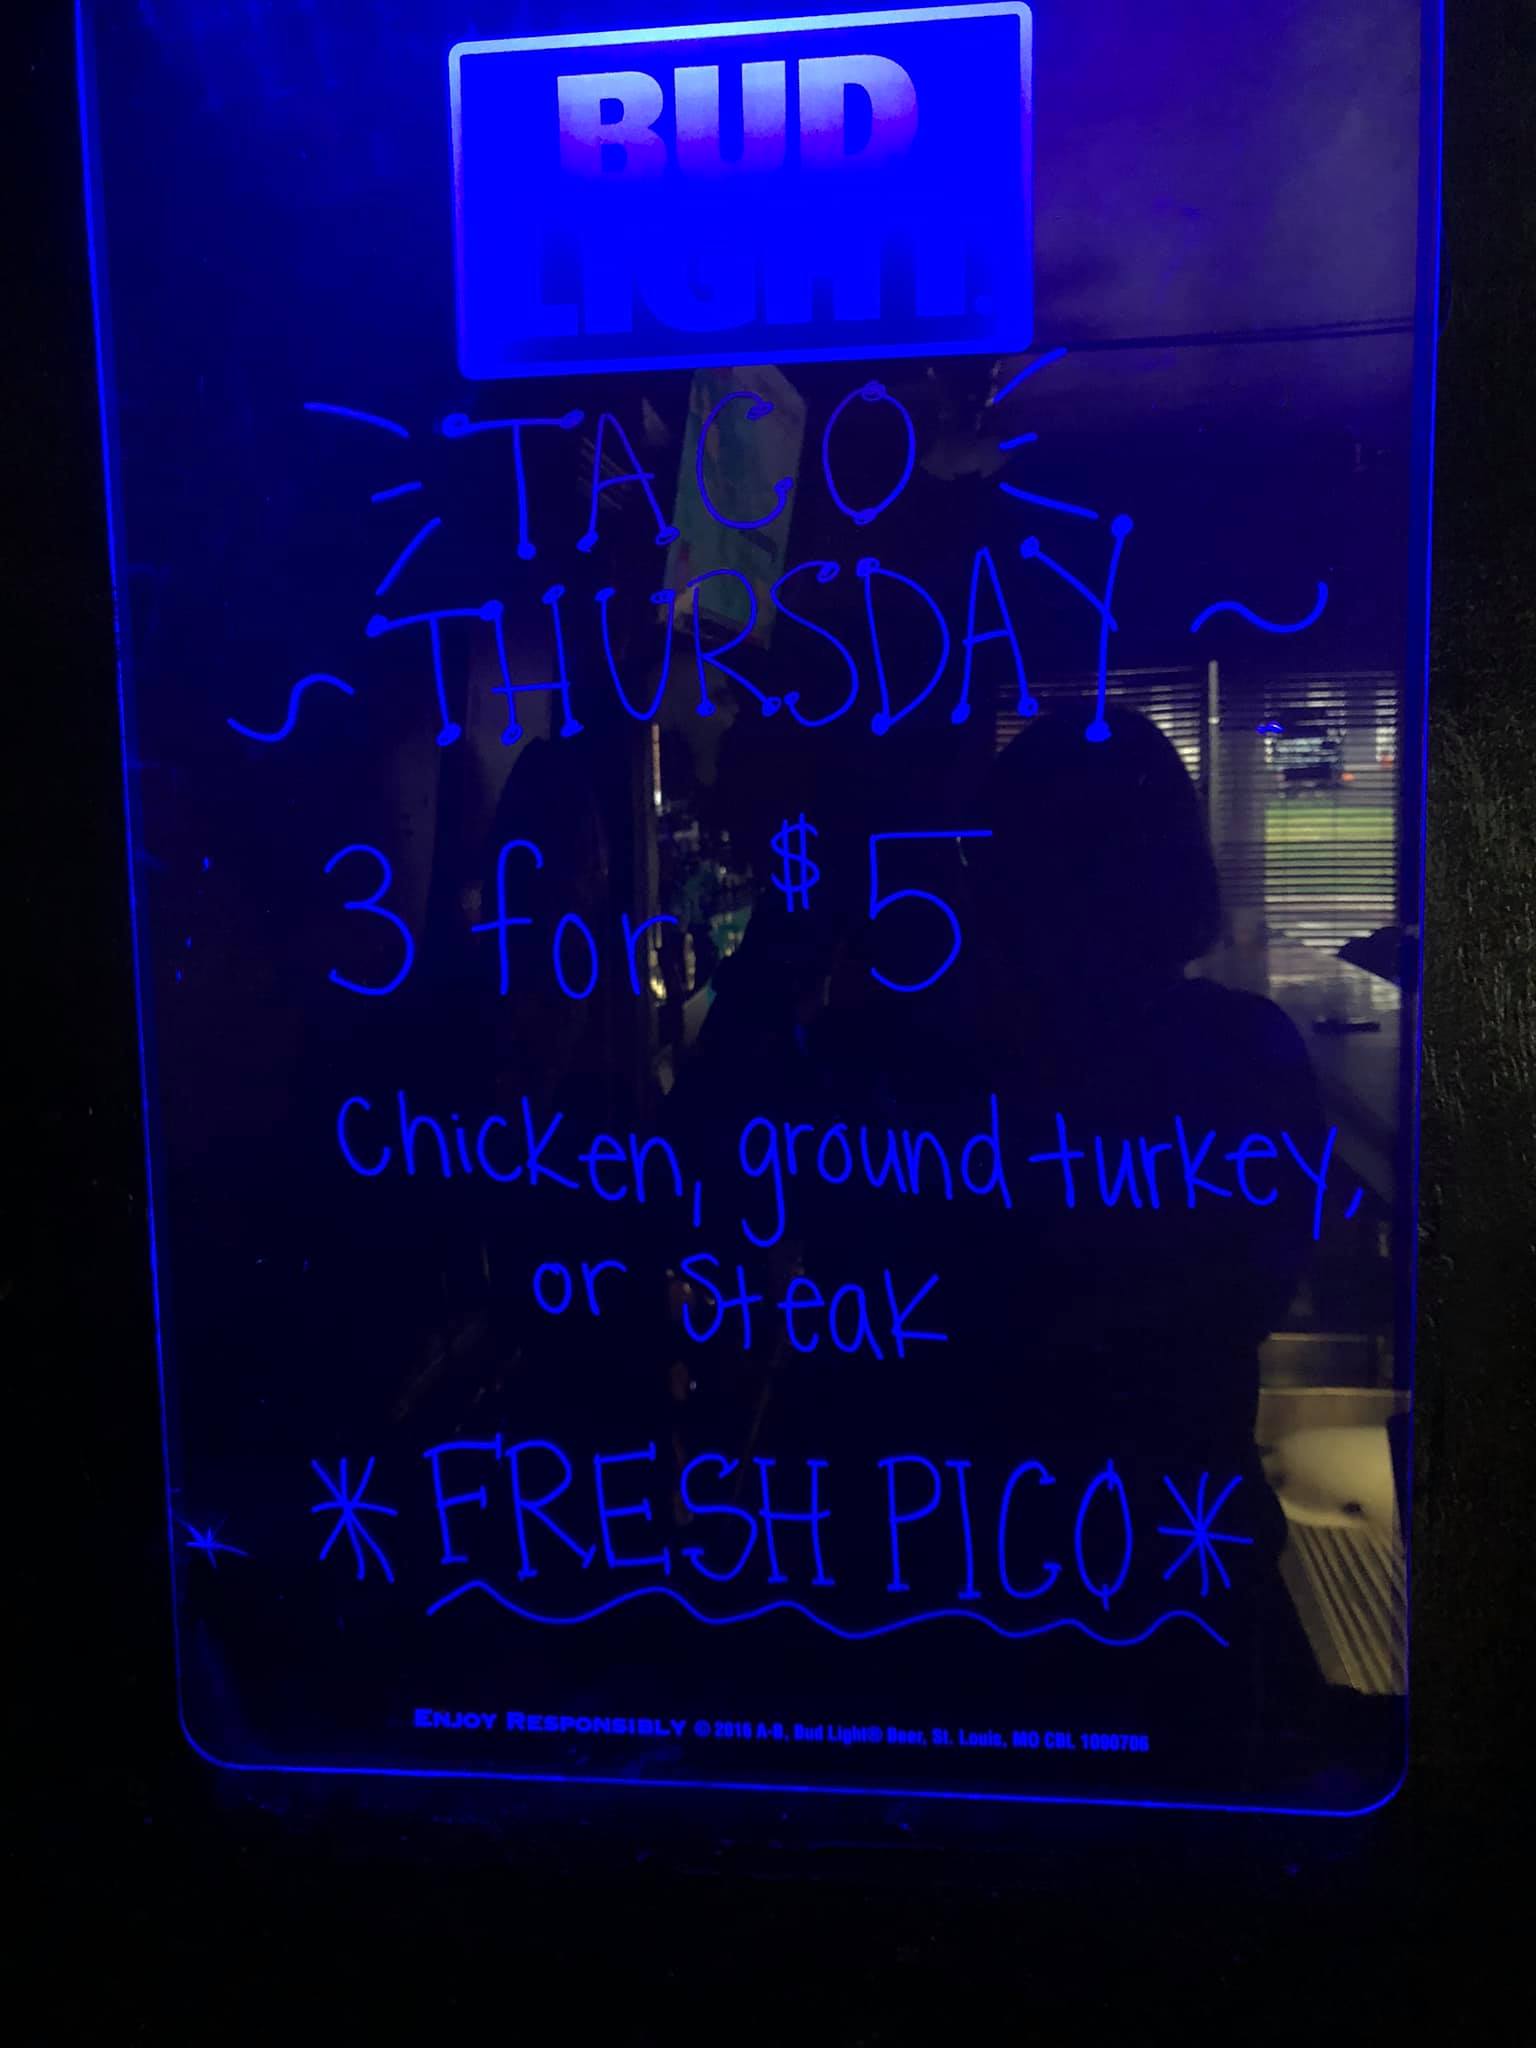 BUD
LIGHT.
TACO
~THURSDAY~
3 for $5
Chicken, ground turkey,
or Steak
* FRESH PICO *
ENJOY RESPONSIBLY © 2016 A-B, Bud Light® Beer, St. Louis, MO CBL 1000706